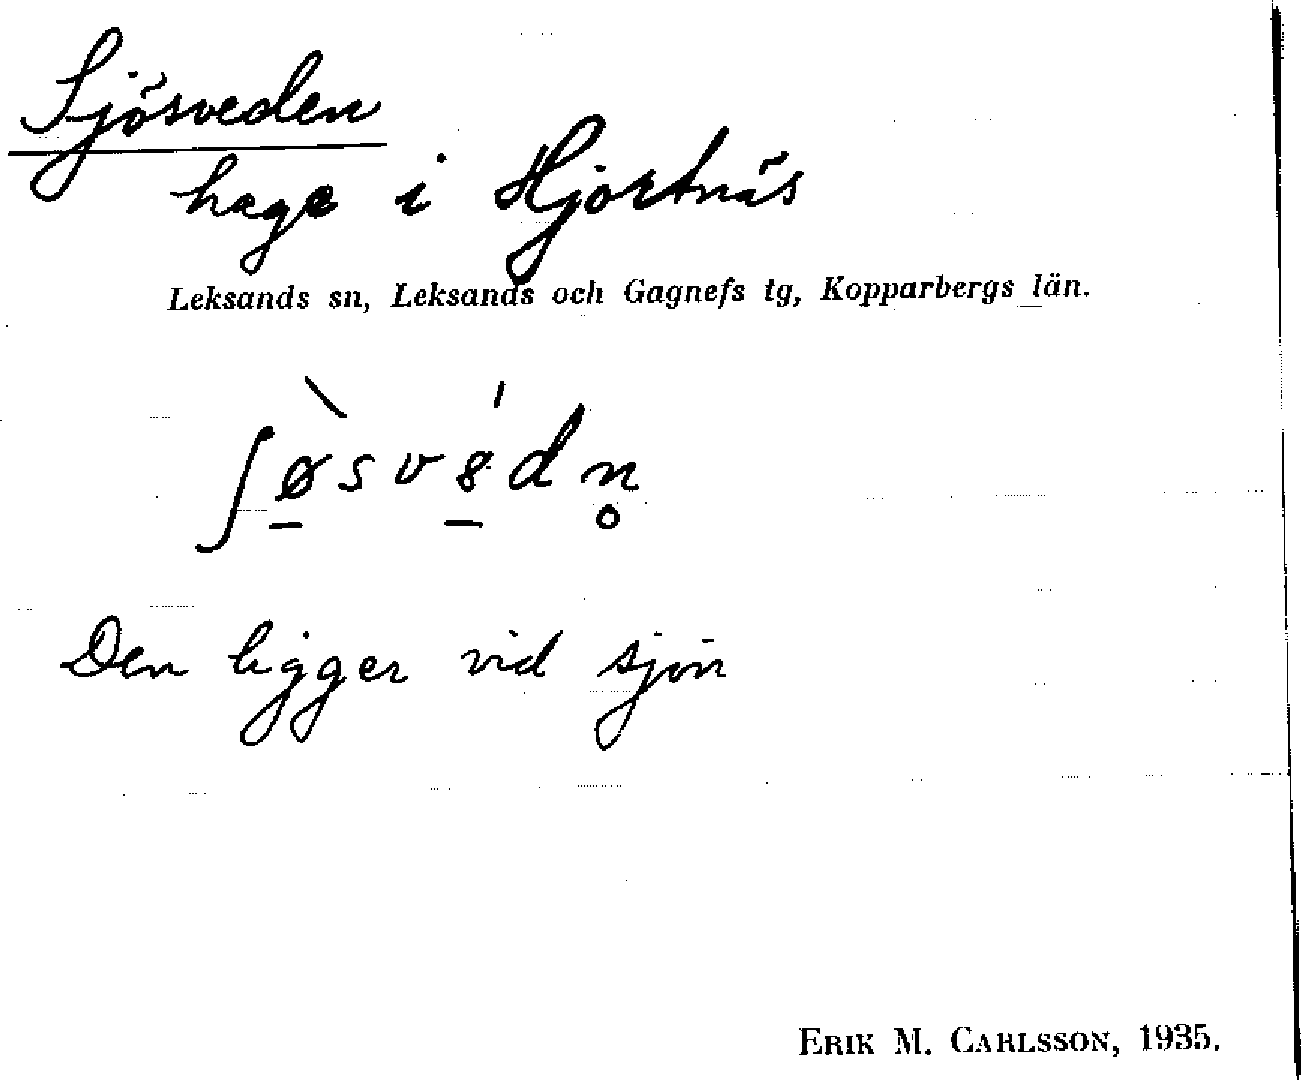 Sjösveden
hage i Hjortnäs
Leksands sn, Leksands och Gagnefs tg, Kopparbergs län.
ʃø̱̀svɛ̱́dn̥
Den ligger vid sjön
ERIK M. CARLSSON, 1935.